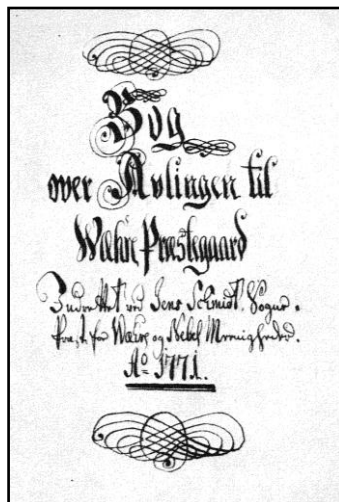 Bog
over Avlingen til
Wæhre Præstegaard
Indrettet ved Jens Schmidt, Sogne-
Præst for Wæhre og Nebel Meenigheder.
Ao 1771.